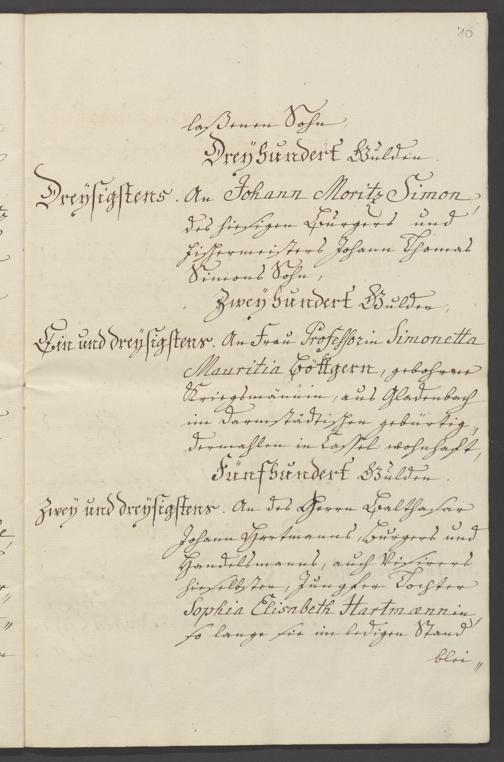 10
laßenen Sohn
Dreyhundert Gulden.
Dreysigstens. An Johann Moritz Simon,
des hiesigen Burgers und
Fischermeisters Johann Thomas
Simons Sohn,
Zweyhundert Gulden,
Ein und dreysigstens. An Frau Professorin Simonetta
Mauritia Böttgern, gebohrne
Kriegsmännin, aus Gladenbach
im Darmstädtischen gebürtig,
dermahlen in Cassel wohnhafft,
Fünfhundert Gulden.
Zwey und dreysigstens. An des Herrn Balthasar
Johann Hartmanns, Burgers und
Handelsmanns, auch Visirers
hieselbsten, Jungfer Tochter
Sophia Elisabeth Hartmännin,
so lange sie im ledigen Stand
blei„